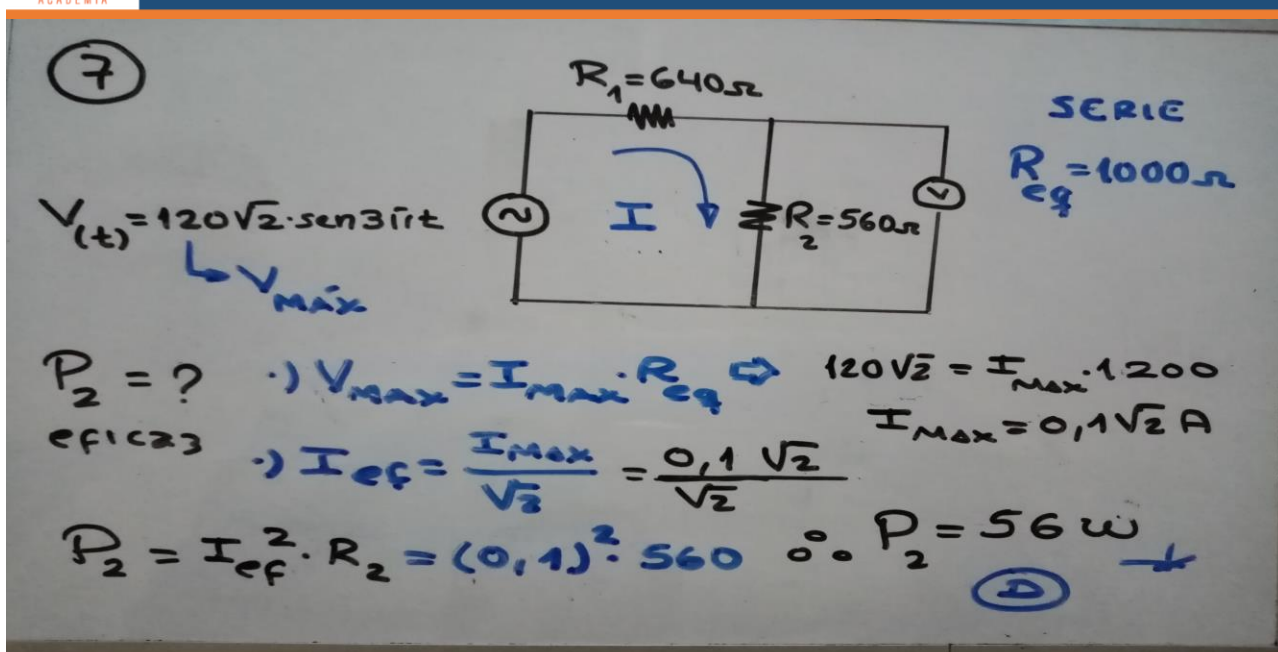 ACADEMIA
7
R₁=640Ω
SERIE
R_eq=1000Ω
V(t)=120√2·sen3πt
I
R₂=560Ω
V
V_MÁX
P₂ = ? ·) V_MAX = I_MAX·R_eq ⇨ 120√2 = I_MAX·1200
eficaz
I_MAX=0,1√2 A
·) I_ef = I_MAX/√2 = 0,1 √2/√2
P₂ = I_ef²·R₂ = (0,1)²·560 ∴ P₂=56 w
D